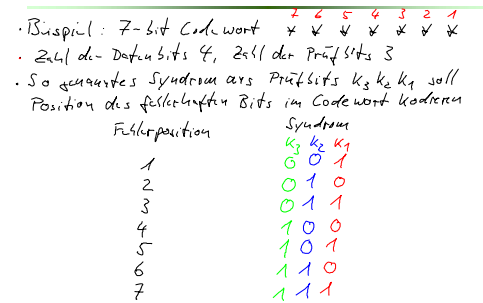 7 6 5 4 3 2 1
· Beispiel: 7-bit Codewort * * * * * * *
· Zahl der Datenbits 4, Zahl der Prüfbits 3
· So genanntes Syndrom aus Prüfbits K3 K2 K1 soll
Position des fehlerhaften Bits im Codewort kodieren
Fehlerposition Syndrom
K3 K2 K1
1 0 0 1
2 0 1 0
3 0 1 1
4 1 0 0
5 1 0 1
6 1 1 0
7 1 1 1